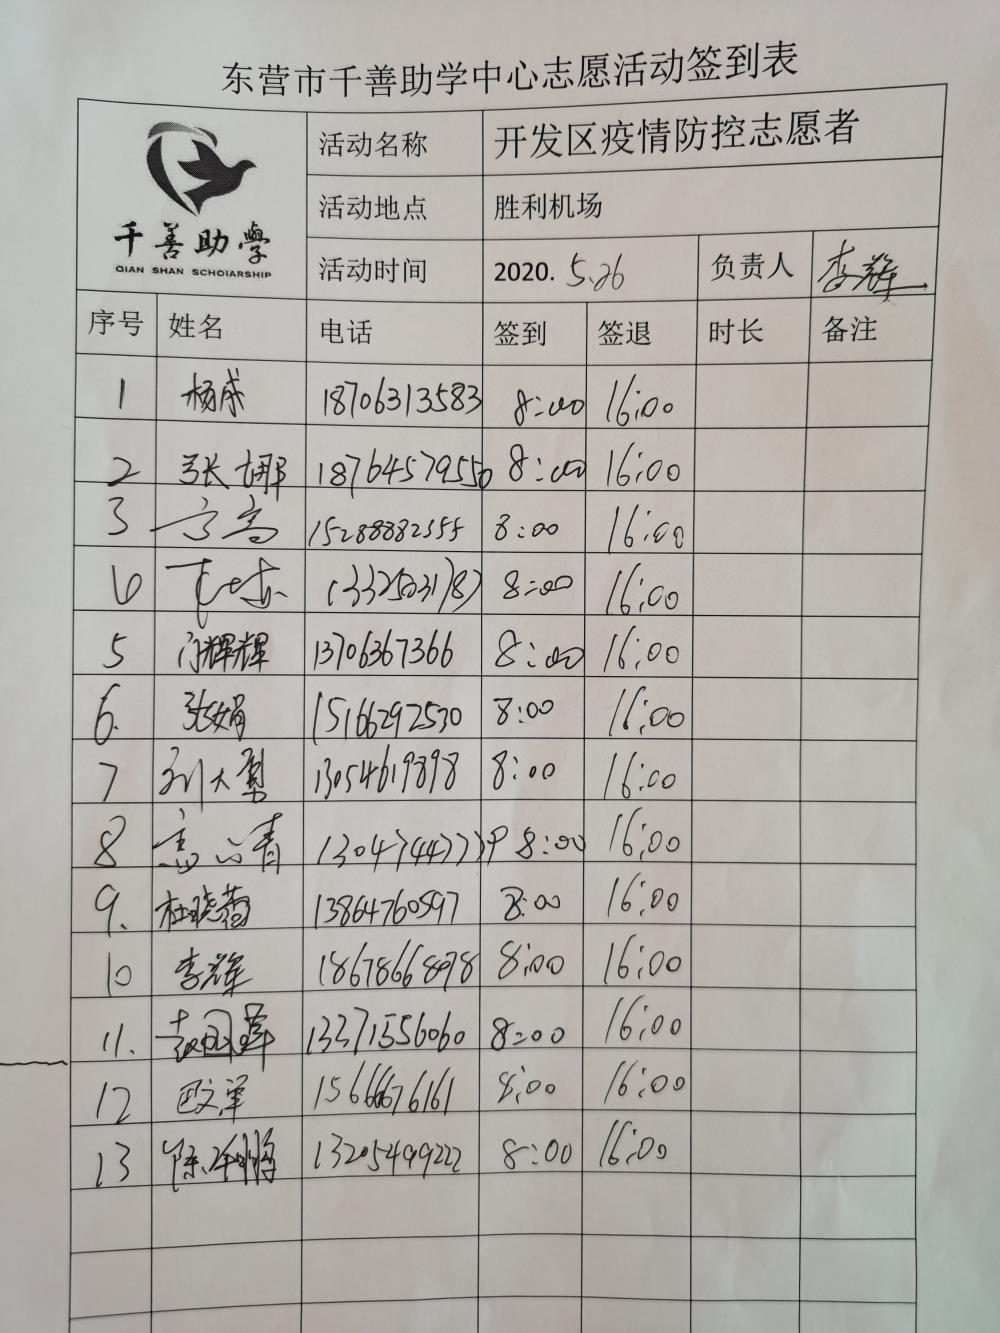 东营市千善助学中心志愿活动签到表
千善助学
QIAN SHAN SCHOIARSHIP
活动名称 开发区疫情防控志愿者
活动地点 胜利机场
活动时间 2020. 5.26 负责人 李辉
序号 姓名 电话 签到 签退 时长 备注
1 杨成 18706313583 8:00 16:00
2 张娜 18764579550 8:00 16:00
3 15288882555 8:00 16:00
8:00 16:00
5 辉辉 13706367366 8:00 16:00
6. 张娟 15166292530 8:00 16:00
7 刘大勇 13054619898 8:00 16:00
8 8:00 16:00
9. 杜晓菊 13864760597 8:00 16:00
10 李辉 18678668978 8:00 16:00
11. 13371556060 8:00 16:00
12 巴文军 15666676161 8:00 16:00
13 13205499222 8:00 16:00